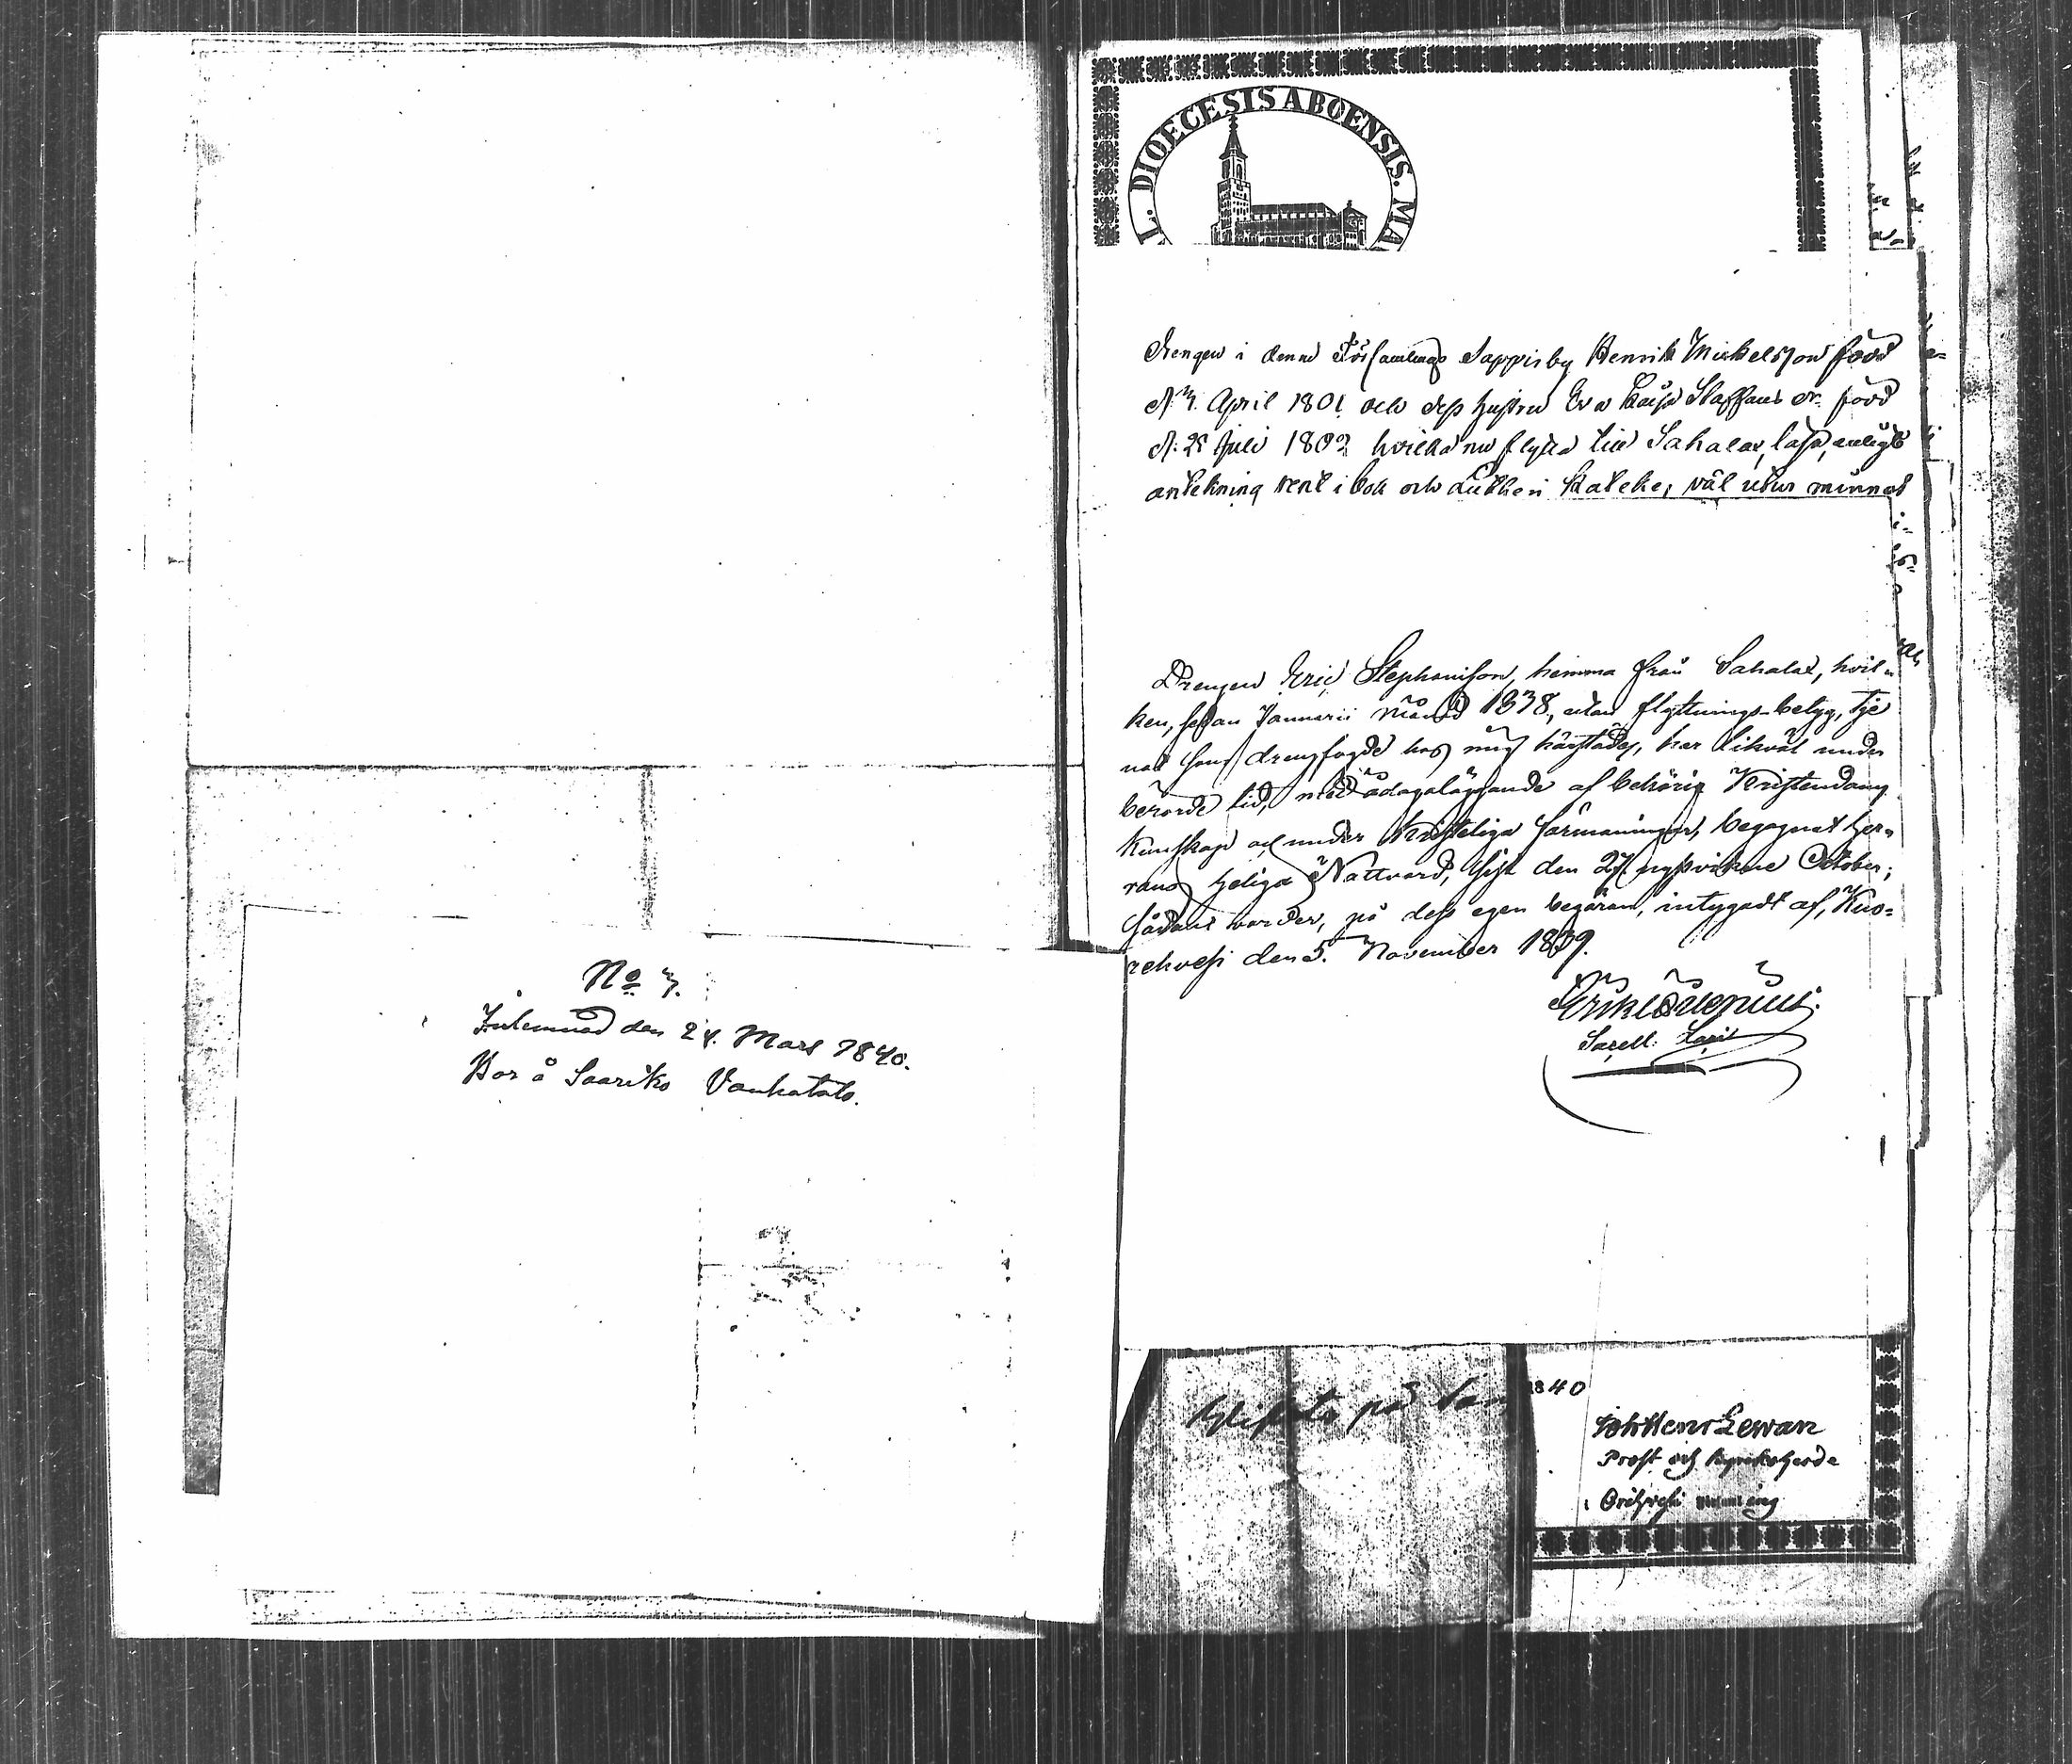 No 7.
Inlemnad den 24. Mars 1840.
Bor å Saariko Vauhatalo.
L. DIOECESIS ABOENSIS. MA
Drengen i denna Församlings Sappis by Henrik Mickelsson född
d. 7. April 1801 och dess hustru Eva Caisa Staffans dr. född
d. 25 Juli 1802 hvilka nu flytta till Sahalax, läsa, enligt
antekning rent i bok och Lutheri Kateke, väl utur minnet
Drengen Eric Stephanisson, hemma från Sahalax, hvil-
ken, sedan Januarii månad 1838, utan flyttnings-betyg, tje
nat som drengfogde hos mig härstädes, har likväl under
berörde tid, med ådagaläggande af behörig Kristendoms
kunskap och under Kristeliga förmaningar, begagnat Her-
rans heliga Nattvard, sist den 27. nystvikne October;
sådant varder, på dess egen begäran, intygadt af, Kuo-
rehvesi den 5. November 1839.
Erik
Sacell.
på
1840
Joh Henr Lewan
Prost och Kyrkoherde
i Orihvesi